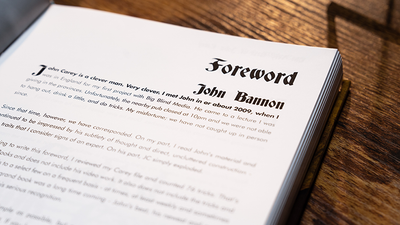 Foreword
John Bannon
John Carey is a clever man. Very clever. I met John in or about 2009, when I
was in England for my first project with Big Blind Media. He came to a lecture I was
giving in the provinces. Unfortunately, the nearby pub closed at 10pm and we were not able
to hang out, drink a little, and do tricks. My misfortune; we have not caught up in person
Since that time, however, we have corresponded. On my part, I read John's material and
continued to be impressed by his subtlety of thought and direct, uncluttered construction -
traits that I consider signs of an expert. On his part, JC simply exploded.
to write this foreword, I reviewed my Carey file and counted 74 tricks. That's
books and does not include his video work. It also does not include the tricks
to a select few on a frequent basis - at times, at least weekly, and sometimes
brand book was a long time coming - John's
serious recognition.
as possible, but